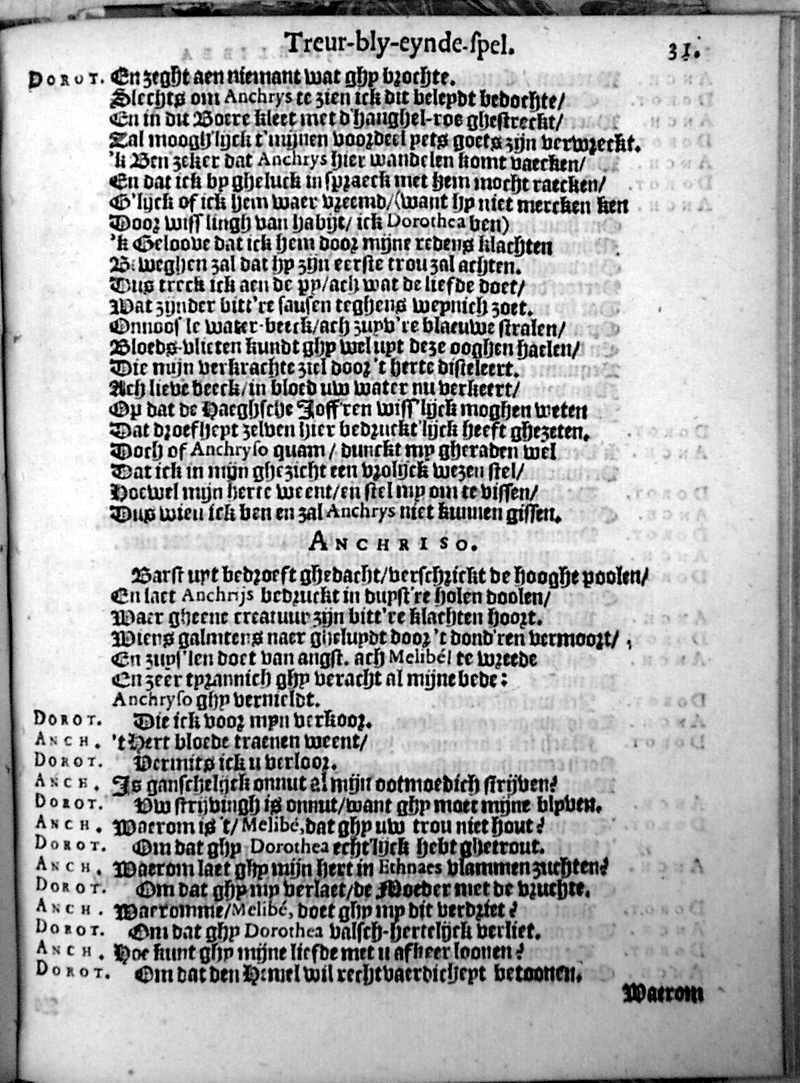 Treur-bly-eynde-spel. 31.
DOROT. En zeght aen niemant wat ghy brochte.
Slechts om Anchrys te zien ick dit beleydt bedochte/
En in dit Boere kleet met d'hanghel-roe ghestreckt/
Zal moogh'lijck t'mijnen voordeel yets goets zijn verwreckt.
'k Ben zeker dat Anchrys hier wandelen komt vaecken/
En dat ick by gheluck in spraeck met hem mocht raecken/
G'lijck of ick hem waer vreemd/(want hy niet mercken ken
Door wiss'lingh van habijt/ ick Dorothea ben)
'k Geloove dat ick hem door mijne redens klachten
Beweghen zal dat hy zijn eerste trou zal achten.
Dus treck ick aen de py/ach wat de liefde doet/
Wat zijnder bitt're sausen teghens weynich zoet.
Onnoos'le water-beeck/ach zuyv're blaeuwe stralen/
Bloeds-vlieten kundt ghy wel uyt deze ooghen haelen/
Die mijn verkrachte ziel door 't herte disteleert.
Ach lieve beeck/in bloed uw water nu verkeert/
Op dat de Haeghsche Joff'ren wiss'lijck moghen weten
Dat droefheyt zelven hier bedruckt'lijck heeft ghezeten.
Doch of Anchryso quam/ dunckt my gheraden wel
Dat ick in mijn ghezicht een vrolijck wezen stel/
Hoewel mijn herte weent/en stel my om te vissen/
Dus wieu ick ben en zal Anchrys niet kunnen gissen.
ANCHRISO.
Barst uyt bedroeft ghedacht/verschrickt de hooghe poolen/
En laet Anchrijs bedruckt in duyst're holen doolen/
Waer gheene creatuur zijn bitt're klachten hoort.
Wiens galmtens naer gheluydt door 't dond'ren vermoort/
En zuys'len doet van angst. ach Melibél te wreede
En zeer tyrannich ghy veracht al mijne bede:
Anchryso ghy vernieldt.
DOROT. Die ick voor myn verkoor.
ANCH. 't Hert bloede traenen weent/
DOROT. Vermits ick u verloor.
ANCH. Is ganschelijck onnut al mijn ootmoedich strijven?
DOROT. Uw strijvingh is onnut/want ghy moet mijne blyven.
ANCH. Waerom is 't/ Melibé, dat ghy uw trou niet hout?
DOROT. Om dat ghy Dorothea echt'lijck hebt ghetrout.
ANCH. Waerom laet ghy mijn hert in Ethnaes vlammen zuchten?
DOROT. Om dat ghy my verlaet/de Moeder met de vruchte.
ANCH. Waeromme/Melibé, doet ghy mp dit verdriet?
DOROT. Om dat ghy Dorothea valsch-hertelijck verliet.
ANCH. Hoe kunt ghy mijne liefde met u afkeer loonen?
DOROT. Om dat den Hemel wil rechtvaerdicheyt betoonen.
Waerom